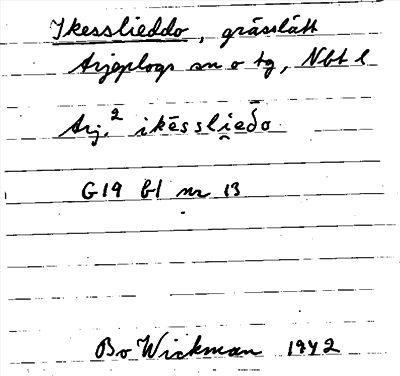 Ikesslieddo, grässlått
Arjeplogs sn o tg, Nbt l
Arj.² ikēssli̮eδo
G19 bl nr 13
Bo Wickman 1942